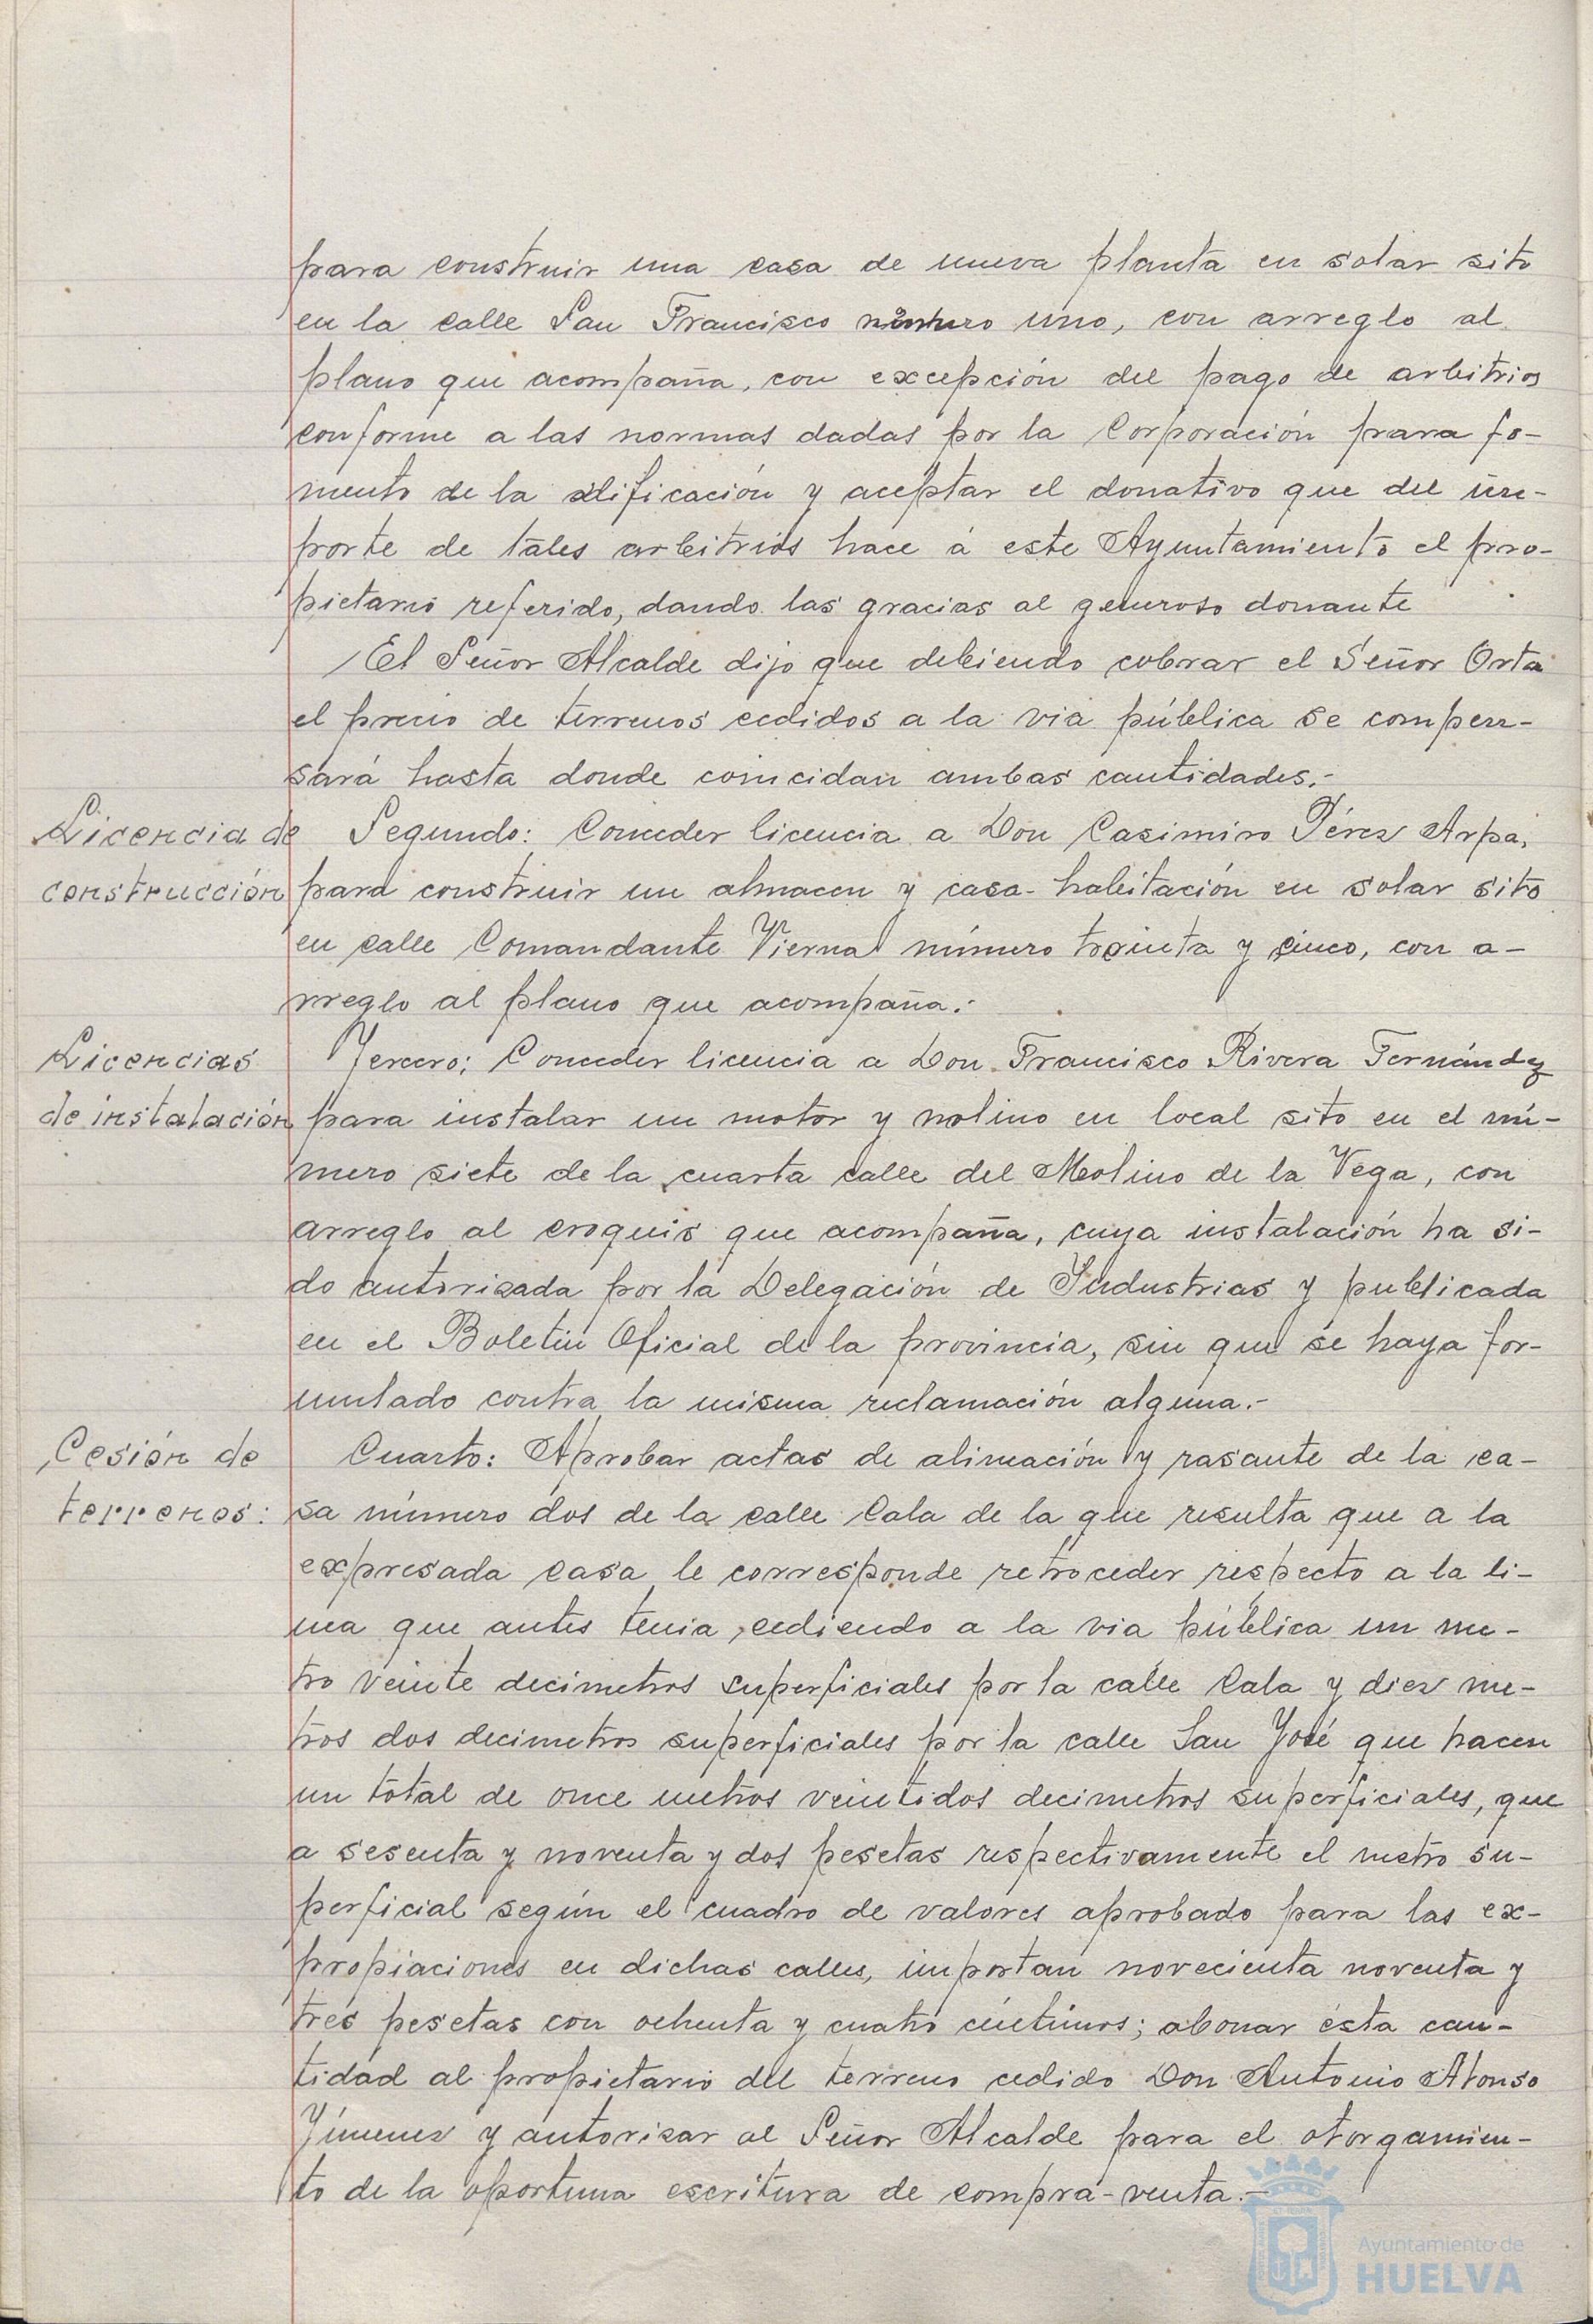 para construir una casa de nueva planta en solar sito
en la calle San Francisco número uno, con arreglo al
plano que acompaña, con excepción del pago de arbitrios
conforme a las normas dadas por la Corporación para fo-
mento de la edificación y aceptar el donativo que del im-
porte de tales arbitrios hace a este Ayuntamiento el pro-
pietario referido, dando las gracias al generoso donante
El Señor Alcalde dijo que debiendo cobrar el Señor Orta
el precio de terrenos cedidos a la via pública se compen-
sará hasta donde coincidan ambas cantidades.-
Licencia de
construcción
Segundo: Conceder licencia a Don Casimiro Pérez Arpa,
para construir un almacen y casa-habitación en solar sito
en calle Comandante Vierna número treinta y cinco, con a-
rreglo al plano que acompaña.-
Licencias
de instalación
Tercero: Conceder licencia a Don Francisco Rivera Fernández
para instalar un motor y molino en local sito en el nú-
mero siete de la cuarta calle del Molino de la Vega, con
arreglo al croquis que acompaña, cuya instalación ha si-
do autorizada por la Delegación de Industrias y publicada
en el Boletin Oficial de la provincia, sin que se haya for-
mulado contra la misma reclamación alguna.-
Cesión de
terrenos:
Cuarto: Aprobar actas de alineación y rasante de la ca-
sa número dos de la calle Cala de la que resulta que a la
expresada casa le corresponde retroceder respecto a la li-
nea que antes tenia, cediendo a la via pública un me-
tro veinte decimetros superficiales por la calle Cala y diez me-
tros dos decimetros superficiales por la calle San José que hacen
un total de once metros veintidos decimetros superficiales, que
a sesenta y noventa y dos pesetas respectivamente el metro su-
perficial según el cuadro de valores aprobado para las ex-
propiaciones en dichas calles, importan novecienta noventa y
tres pesetas con ochenta y cuatro céntimos; abonar ésta can-
tidad al propietario del terreno cedido Don Antonio Alonso
Jimenez y autorizar al Señor Alcalde para el otorgamien-
to de la oportuna escritura de compra-venta.-
Ayuntamiento de
HUELVA